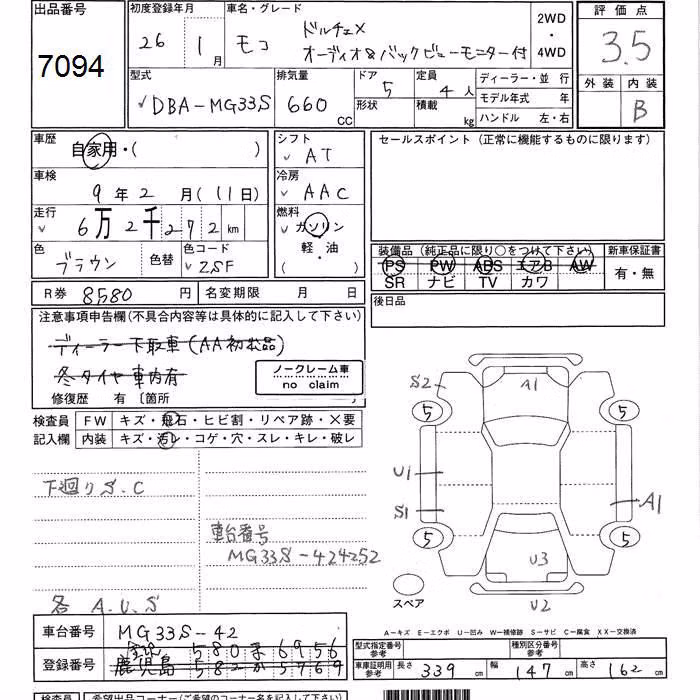 出品番号 初度登録年月 車名・グレード 2WD・4WD 評価点
7094 26年 1月 モコ ドルチェX 3.5
オーディオ&バックビューモニター付
型式 排気量 ドア 5 定員 4人 ディーラー・並行 外装 内装
DBA-MG33S 660cc 形状 積載 kg モデル年式 年 B
ハンドル 左・右
車歴 自家用・( ) シフト AT セールスポイント(正常に機能するものに限ります)
車検 9年2月(11日) 冷房 AAC
走行 6万2千272km 燃料 ガソリン
軽・油
( )
色 ブラウン 色替 色コード ZSF
装備品(純正品に限り○をつけて下さい) 新車保証書
PS PW ABS エアB AW 有・無
SR ナビ TV カワ
R券 8580円 名変期限 月 日 後日品
注意事項申告欄(不具合内容等は具体的に記入して下さい)
ディーラー下取車(AA初出品)
冬タイヤ車内有
ノークレーム車
no claim
修復歴 有〔箇所
検査員記入欄 FW キズ・飛石・ヒビ割・リペア跡・×要
内装 キズ・汚レ・コゲ・穴・スレ・キレ・破レ
S2 A1
5 5
U1
S1 A1
5 5
U3
U2
スペア
下廻りS.C
車台番号
MG33S-424252
各A.U.S
A-キズ E-エクボ U-凹み W-補修跡 S-サビ C-腐食 XX-交換済
車台番号 MG33S-42
580 ま 6956
登録番号 鹿児島 582 か 5769
型式指定番号 参考 種別区分番号 参考
車庫証明用 参考 長さ 339cm 幅 147cm 高さ 162cm
検査員 希望出品コーナー(ご希望のコーナー名を記入して下さい)